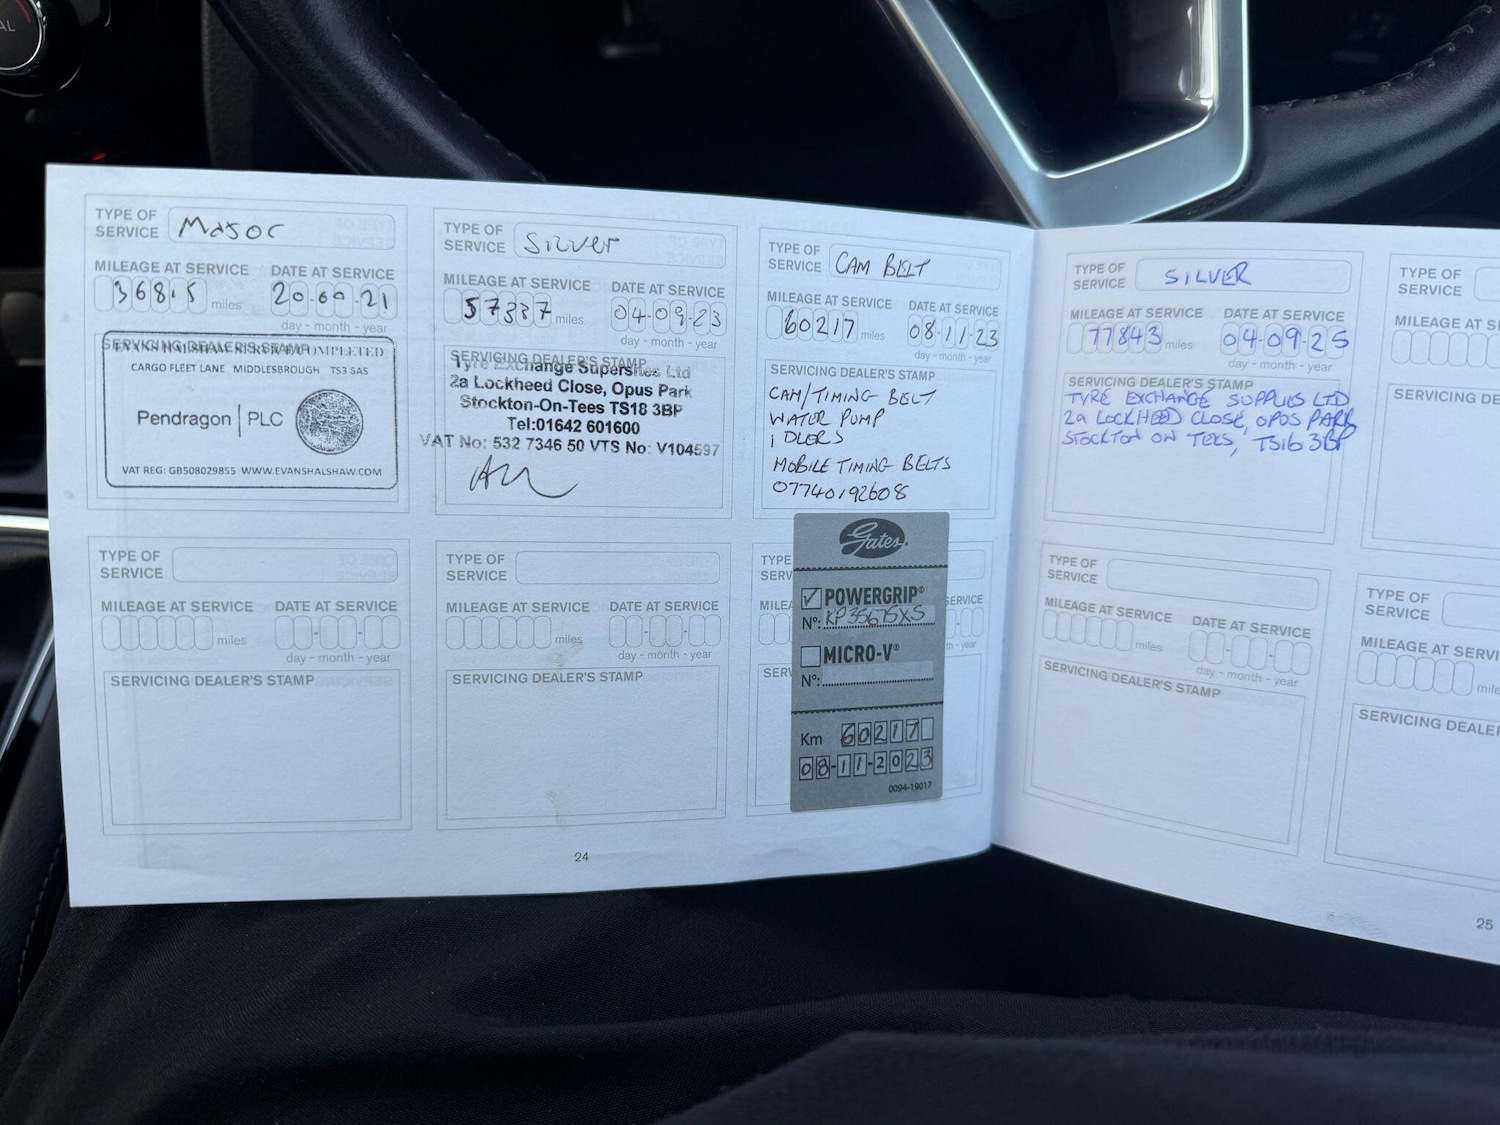 AL
TYPE OF SERVICE Major
MILEAGE AT SERVICE DATE AT SERVICE
miles 21
day - month - year
SERVICING DEALER'S STAMP
COMPLETED
CARGO FLEET LANE MIDDLESBROUGH TS3 8AS
Pendragon PLC
VAT REG: GB508029855 WWW.EVANSHALSHAW.COM
TYPE OF SERVICE Silver
MILEAGE AT SERVICE DATE AT SERVICE
57337 miles 04-09-23
day - month - year
SERVICING DEALER'S STAMP
Tyre Exchange Supersites Ltd
2a Lockheed Close, Opus Park
Stockton-On-Tees TS18 3BP
Tel:01642 601600
VAT No: 532 7346 50 VTS No: V104597
TYPE OF SERVICE CAM BELT
MILEAGE AT SERVICE DATE AT SERVICE
60217 miles 08-11-23
day - month - year
SERVICING DEALER'S STAMP
CAM/TIMING BELT
WATER PUMP
IDLERS
MOBILE TIMING BELTS
07740192608
TYPE OF SERVICE SILVER
MILEAGE AT SERVICE DATE AT SERVICE
77843 miles 04-09-25
day - month - year
SERVICING DEALER'S STAMP
TYRE EXCHANGE SUPPLIES LTD
2a LOCKHEED CLOSE, OPUS PARK
STOCKTON ON TEES, TS16 3BP
TYPE OF SERVICE
MILEAGE AT S
SERVICING DE
TYPE OF SERVICE
MILEAGE AT SERVICE DATE AT SERVICE
miles
day - month - year
SERVICING DEALER'S STAMP
TYPE OF SERVICE
MILEAGE AT SERVICE DATE AT SERVICE
miles
day - month - year
SERVICING DEALER'S STAMP
24
TYPE
SERV
MILEA
SERV
SERVICE
th - year
Gates
POWERGRIP®
Nº:
MICRO-V®
Nº:
Km 60217
08-11-2023
0094-19017
TYPE OF SERVICE
MILEAGE AT SERVICE DATE AT SERVICE
miles
day - month - year
SERVICING DEALER'S STAMP
TYPE OF SERVICE
MILEAGE AT SERVI
mile
SERVICING DEALER
25